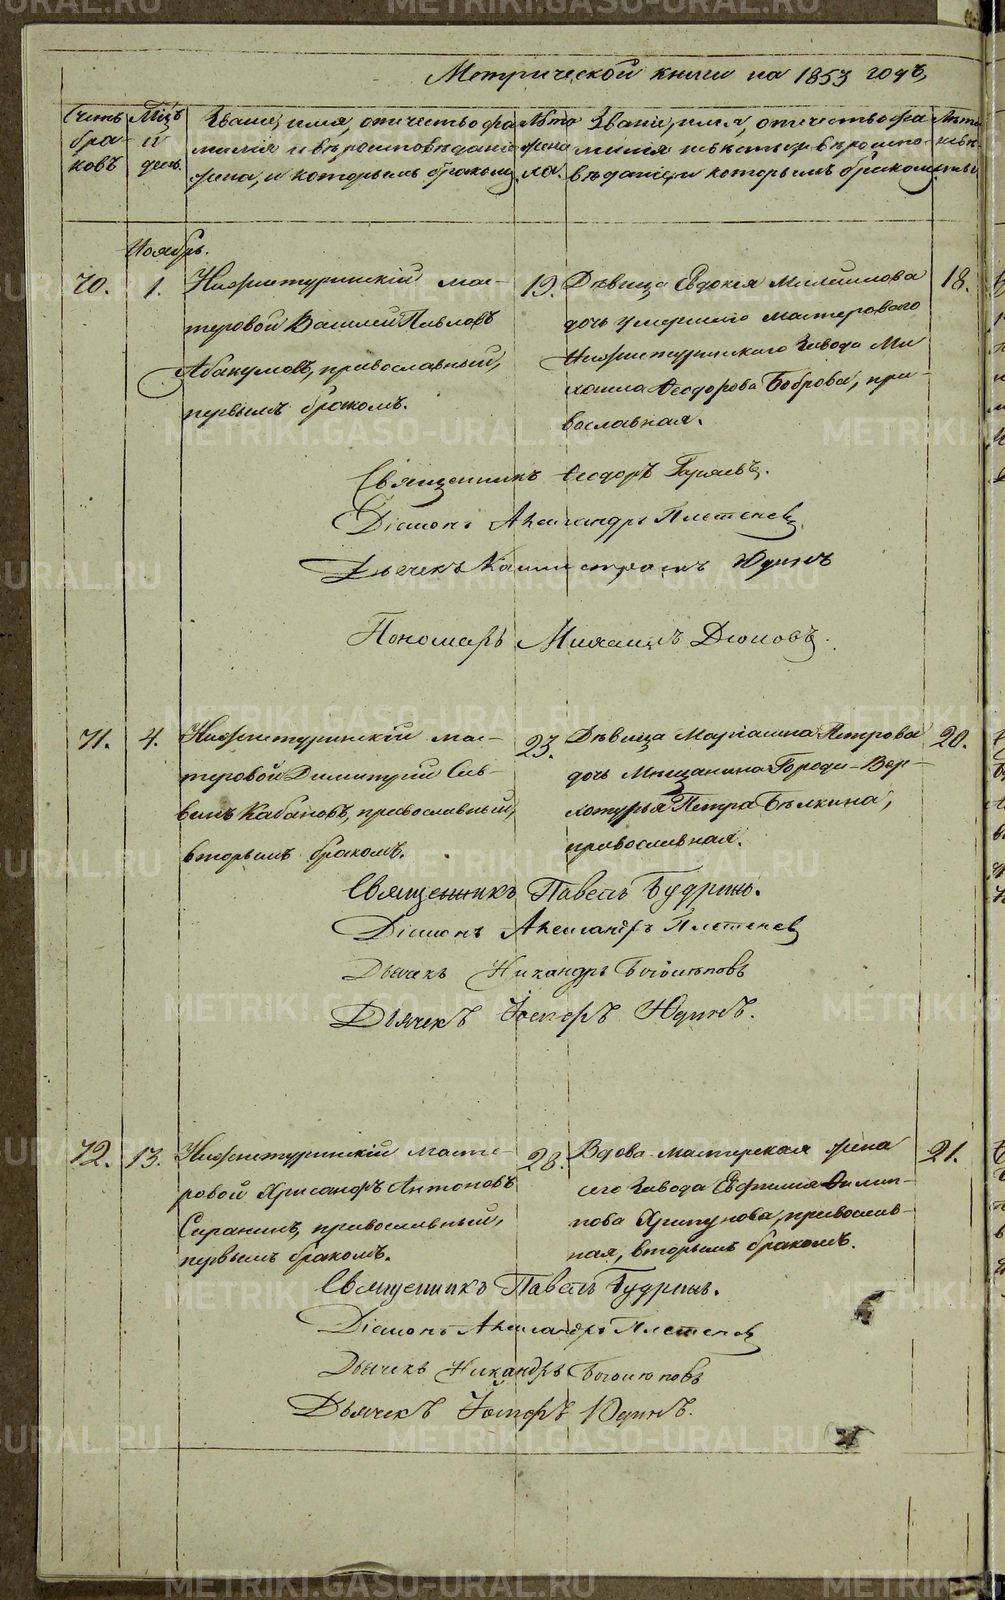 Метрической книги на 1853 годъ,
Счетъ браковъ
Мѣцъ и день.
Званіе, имя, отчество, фамилія и вѣроисповѣданіе жениха, и которымъ бракомъ
Лѣта жениха.
Званіе, имя, отчество, фамилія невѣсты, вѣроисповѣданіе, и которымъ бракомъ
Лѣта невѣсты
Ноябрь.
70.
1.
Нижнетуринскій мас-
теровой Василій Павловъ
Абакумовъ, православный,
первымъ бракомъ.
19.
Дѣвица Евдокія Михайлова
дочь умершаго мастероваго
Нижнетуринскаго Завода Ми
хаила Ѳеодорова Боброва, пра-
вославная.
18.
Священникъ Ѳеодоръ
Діаконъ Александръ Плетеневъ
Дьячекъ Каллистратъ Юдинъ
Пономарь Михаилъ Дюповъ.
71.
4.
Нижнетуринскій мас-
теровой Димитрій Сав-
винъ Кабановъ, православный,
вторымъ бракомъ.
23.
Дѣвица Маріанна Петрова
дочь Мѣщанина Города Вер-
хотурья Петра Бѣлкина,
православная.
20.
Священникъ Павелъ Будринъ.
Діаконъ Александръ Плетеневъ
Дьячекъ Никандръ Боголѣповъ
Дьячекъ Іосифъ Юдинъ.
72.
13.
Нижнетуринскій масте-
ровой Хрисанфъ Антоновъ
Сиранинъ, православный,
первымъ бракомъ.
28.
Вдова мастерская жена
сего Завода Евфимія Филип-
пова Хрипунова, православ-
ная, вторымъ бракомъ.
21.
Священникъ Павелъ Будринъ.
Діаконъ Александръ Плетеневъ
Дьячекъ Никандръ Боголѣповъ
Дьячекъ Іосифъ Юдинъ.
METRIKI.GASO-URAL.RU